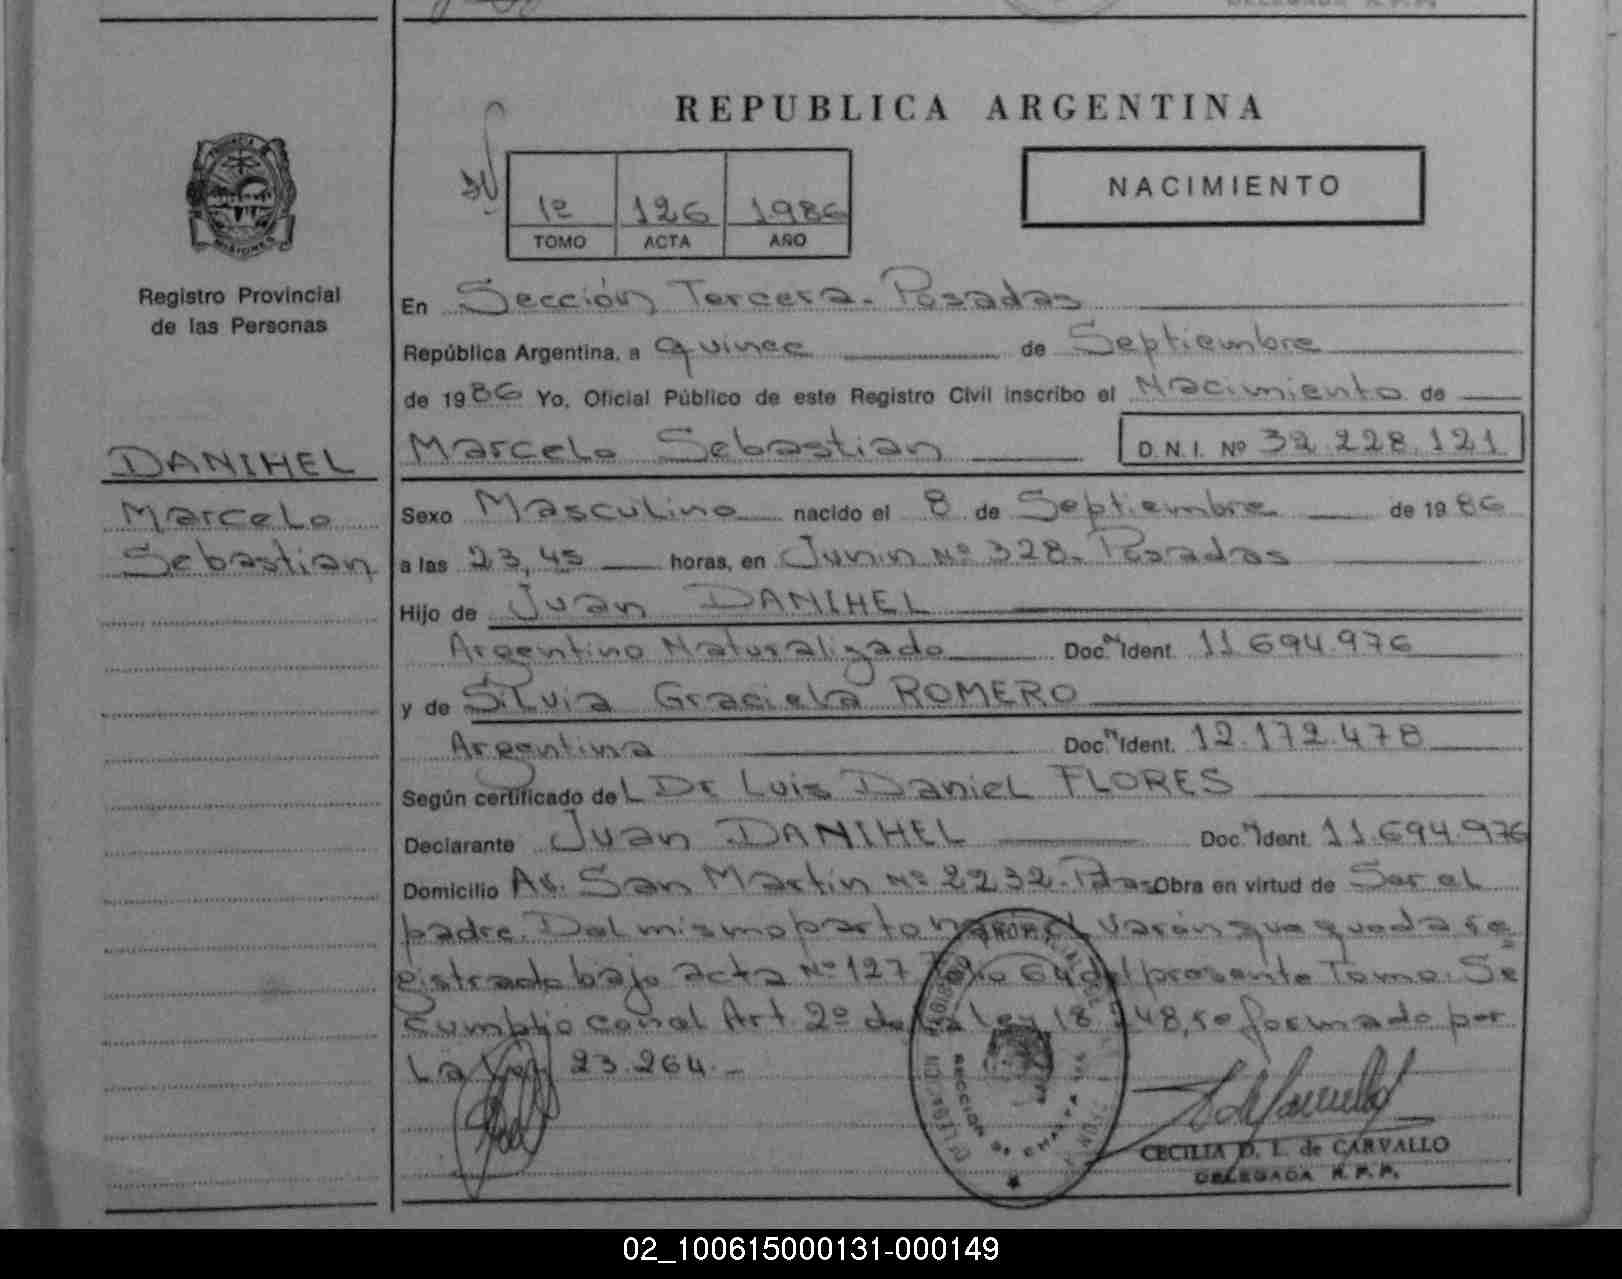 REPUBLICA ARGENTINA
1º 126 1986
TOMO ACTA AÑO
NACIMIENTO
MISIONES
Registro Provincial
de las Personas
En Sección Tercera. Posadas
República Argentina, a quince de Septiembre
de 1986 Yo, Oficial Público de este Registro Civil inscribo el Nacimiento de
DANIHEL
Marcelo
Sebastian
Marcelo Sebastian D.N.I. Nº 32.228.121
Sexo Masculino nacido el 8 de Septiembre de 1986
a las 23,45 horas, en Junin Nº 328. Posadas
Hijo de Juan DANIHEL
Argentino Naturalizado Doc. Ident. 11.694.976
y de Silvia Graciela ROMERO
Argentina Doc. Ident. 12.172.478
Según certificado del Dr Luis Daniel FLORES
Declarante Juan DANIHEL Doc. Ident. 11.694.976
Domicilio Av. San Martin Nº 2232. Pdas Obra en virtud de Ser el
padre. Del mismo parto varón que queda re
gistrado bajo acta Nº 127 64 del presente Tomo. Se
cumplio con el Art. 2º de la ley 18 248, reformado por
La Ley 23.264.-
SECCION
CECILIA D. L. de CARVALLO
DELEGADA R.P.P.
02_100615000131-000149